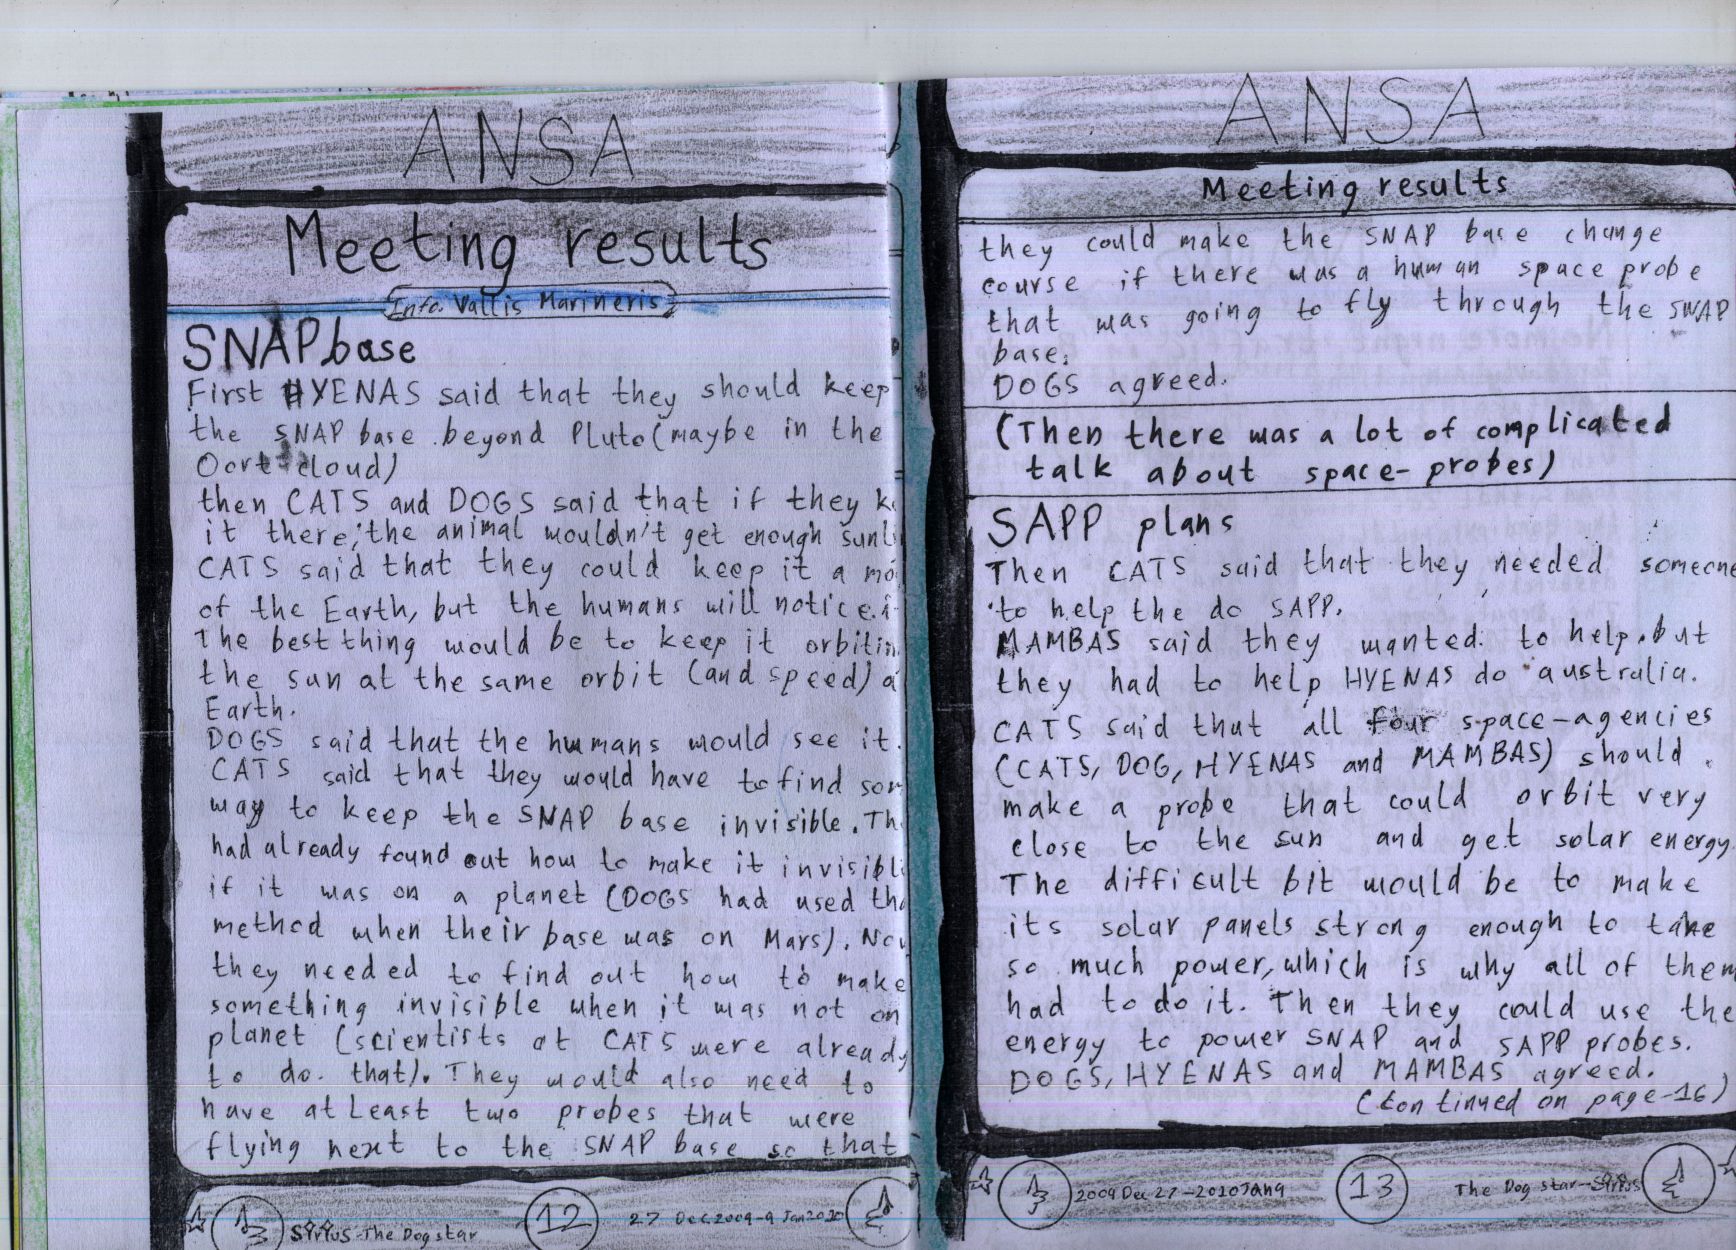 ANSA
Meeting results
Info. Vallis Marineris
SNAP base
First HYENAS said that they should keep
the SNAP base beyond Pluto (maybe in the
Oort cloud)
then CATS and DOGS said that if they
it there, the animal wouldn't get enough
CATS said that they could keep it a
of the Earth, but the humans will notice.
The best thing would be to keep it
the sun at the same orbit (and speed)
Earth.
DOGS said that the humans would see it.
CATS said that they would have to find
way to keep the SNAP base invisible.
had already found out how to make it
if it was on a planet (DOGS had used
method when their base was on Mars).
they needed to find out how to make
something invisible when it was not on
planet (scientists at CATS were already
to do that). They would also need to
have at least two probes that were
flying next to the SNAP base so that
Sirius-The Dog star
12
27 Dec 2009-9 Jan 2010
ANSA
Meeting results
they could make the SNAP base change
course if there was a human space probe
that was going to fly through the SNAP
base.
DOGS agreed.
(Then there was a lot of complicated
talk about space-probes)
SAPP plans
Then CATS said that they needed someone
to help the do SAPP.
MAMBAS said they wanted to help but
they had to help HYENAS do australia.
CATS said that all four space-agencies
(CATS, DOG, HYENAS and MAMBAS) should
make a probe that could orbit very
close to the sun and get solar energy.
The difficult bit would be to make
its solar panels strong enough to take
so much power, which is why all of them
had to do it. Then they could use the
energy to power SNAP and SAPP probes.
DOGS, HYENAS and MAMBAS agreed.
(Continued on page-16)
2009 Dec 27-2010 Jan 9
13
The Dog star-Sirius